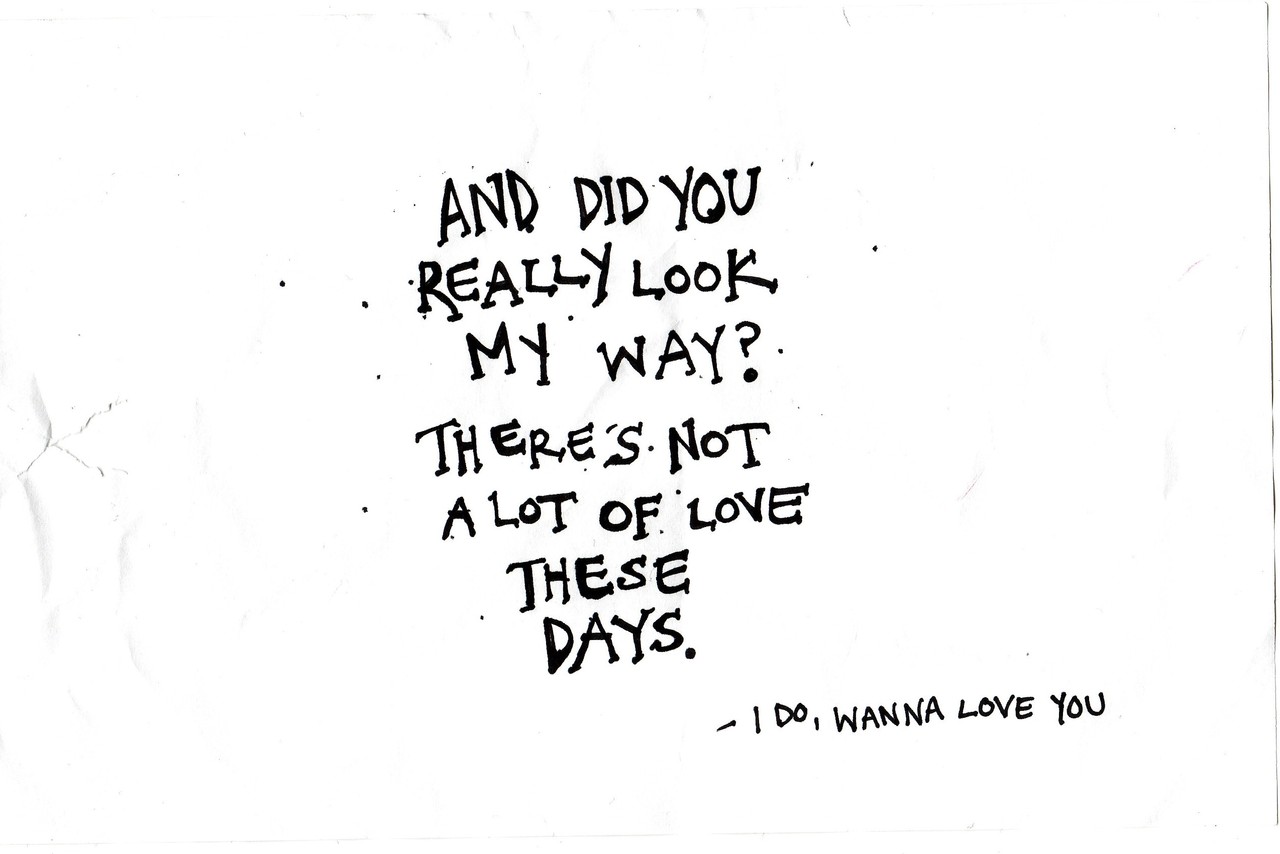 AND DID YOU
REALLY LOOK
MY WAY?
THERE'S NOT
A LOT OF LOVE
THESE
DAYS.
- I DO, WANNA LOVE YOU